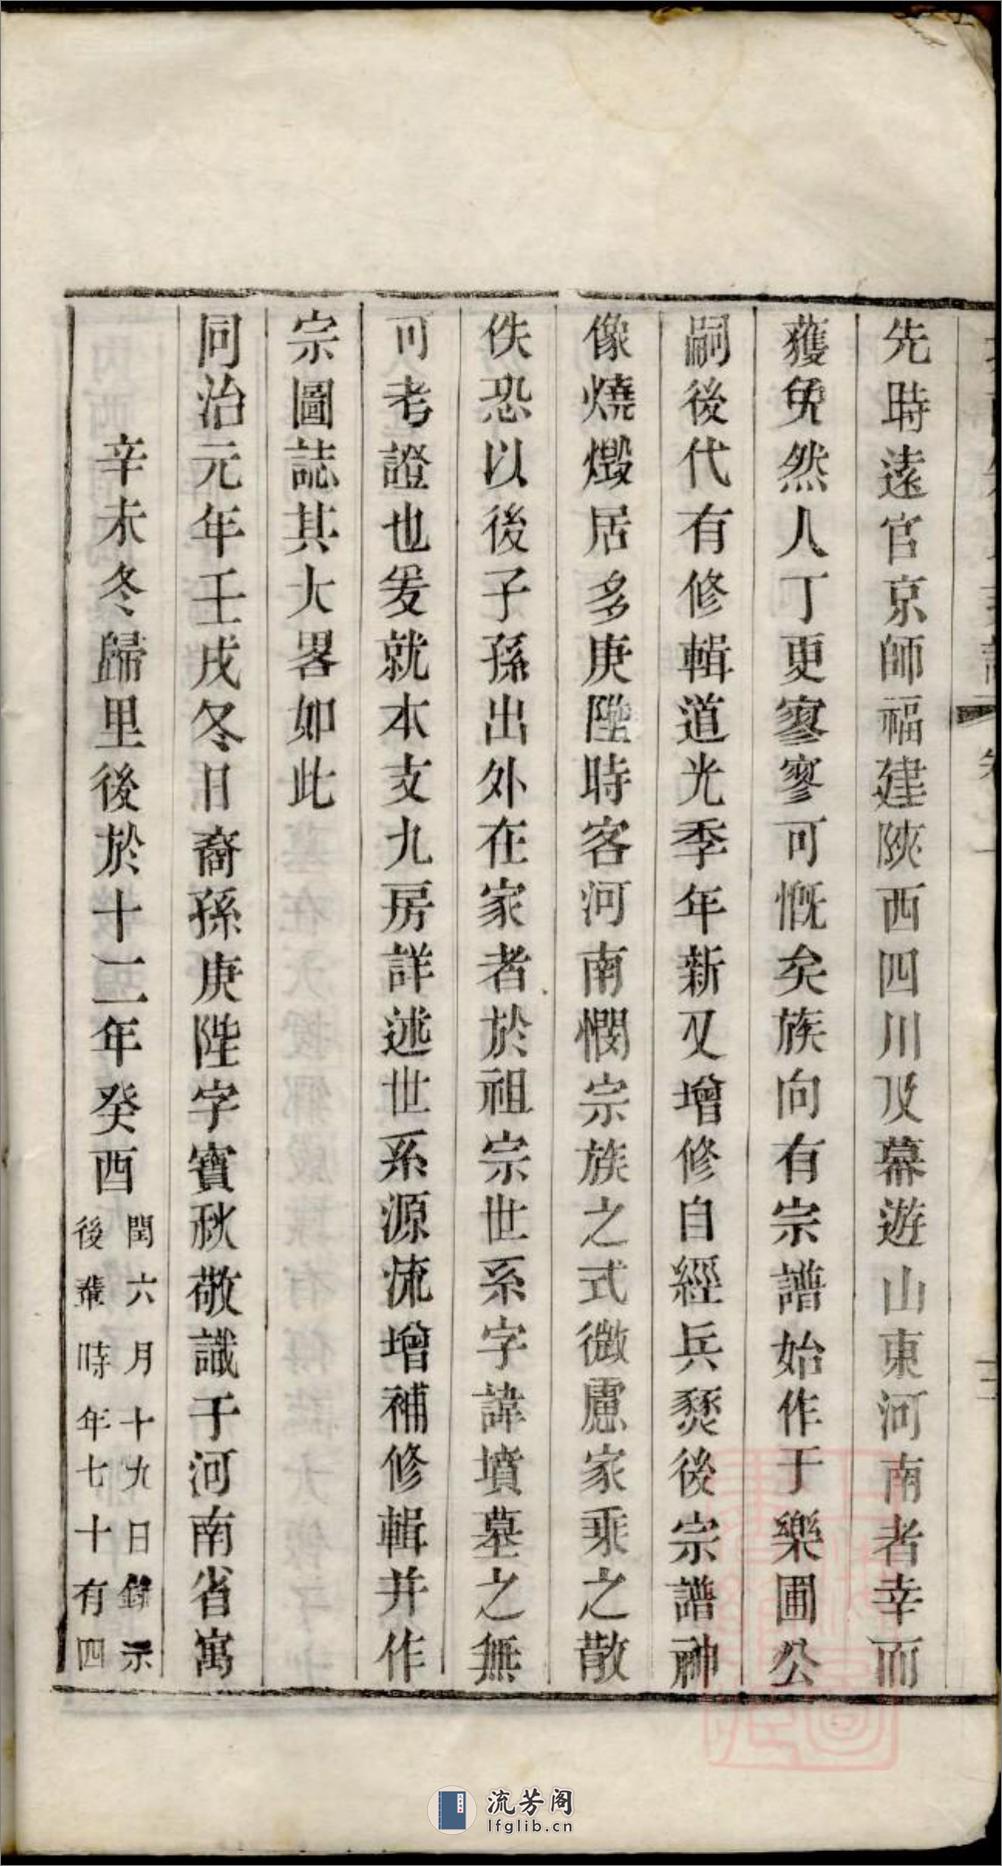 先時遠官京師福建陝西四川及幕遊山東河南者幸而
獲免然人丁更寥寥可慨矣族向有宗譜始作于樂圃公
嗣後代有修輯道光季年新又增修自經兵燹後宗譜神
像燒燬居多庚陞時客河南憫宗族之式微慮家乘之散
佚恐以後子孫出外在家者於祖宗世系字諱墳墓之無
可考證也爰就本支九房詳述世系源流增補修輯并作
宗圖誌其大畧如此
同治元年壬戌冬日裔孫庚陞字寶秋敬識于河南省寓
辛未冬歸里後於十二年癸酉
閏六月十九日錄示
後輩時年七十有四
流芳阁
lfglib.cn